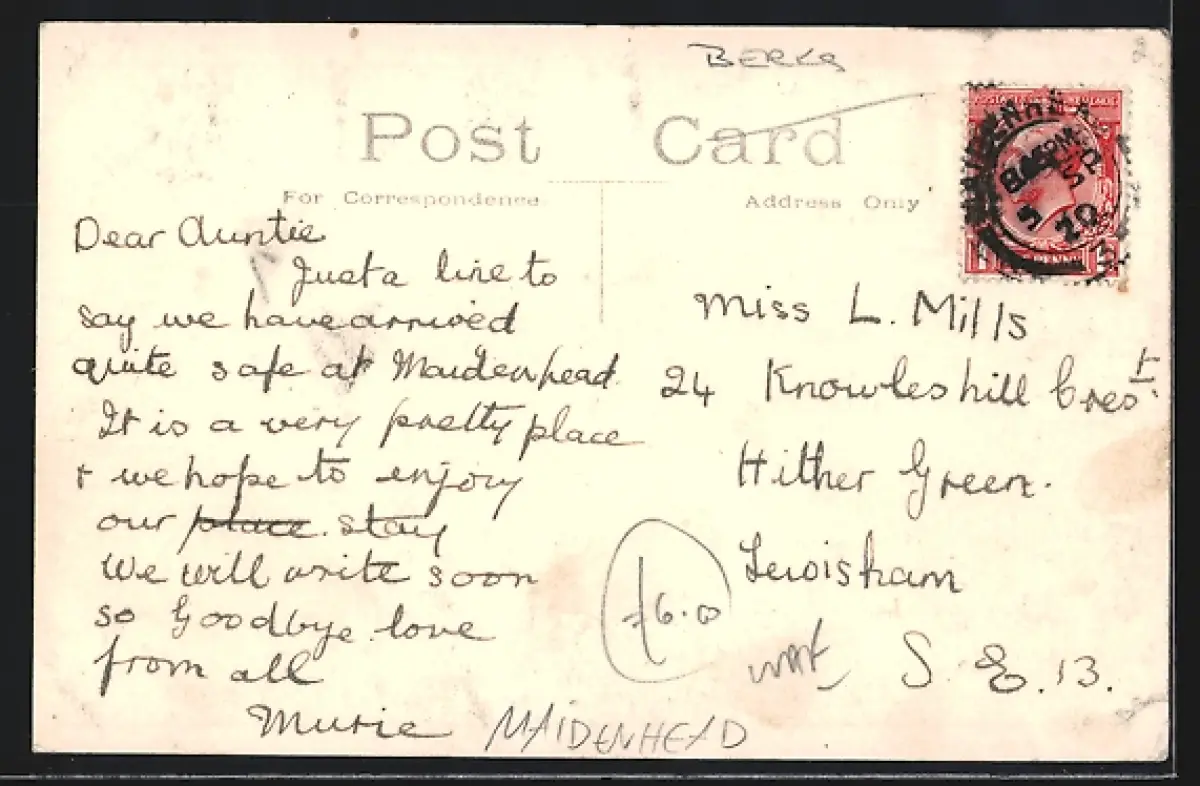 BERKS
Post Card
For Correspondence.
Address Only
MAIDENHEAD
SP
20
PENNY
Dear Auntie
Just a line to
say we have arrived
quite safe at Maidenhead.
It is a very pretty place
& we hope to enjoy
our place. stay
We will write soon
so Goodbye love
from all
Murie
MAIDENHEAD
Miss L. Mills
24 Knowleshill Crest.
Hither Green.
Lewisham
S.E.13.
£6.00